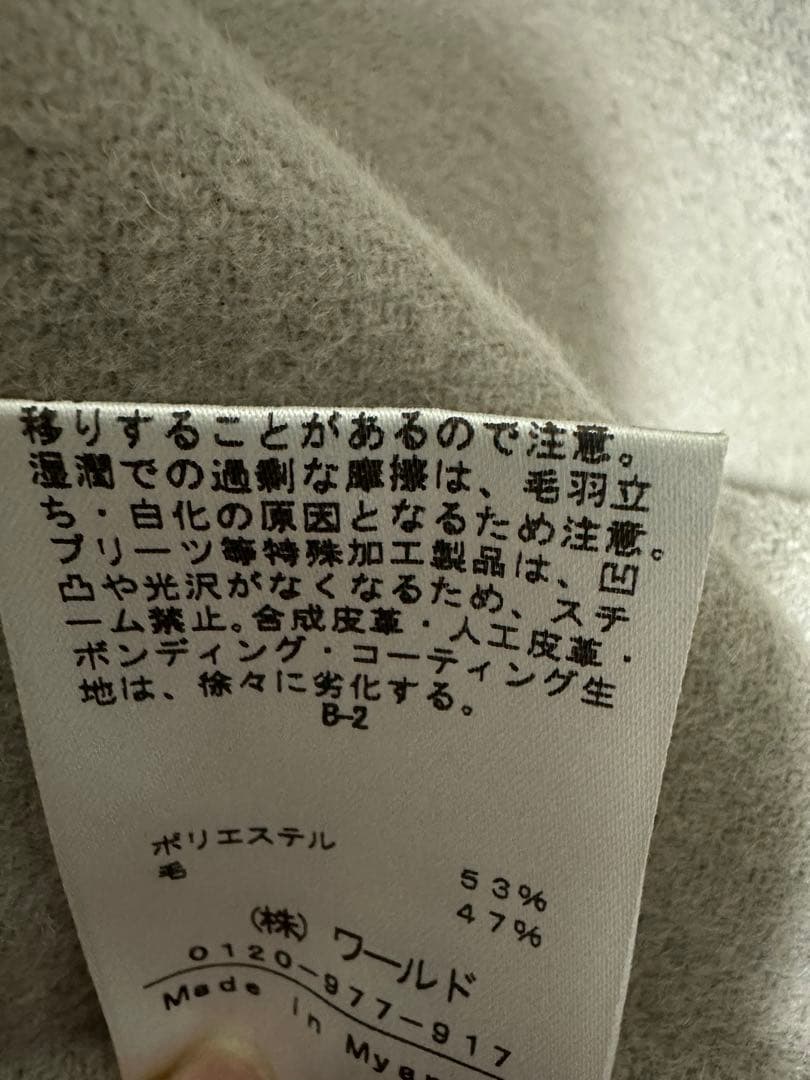 移りすることがあるので注意。
湿潤での過剰な摩擦は、毛羽立
ち・白化の原因となるため注意。
プリーツ等特殊加工製品は、凹
凸や光沢がなくなるため、スチ
ーム禁止。合成皮革・人工皮革・
ボンディング・コーティング生
地は、徐々に劣化する。
B-2
ポリエステル 53%
毛 47%
(株) ワールド
0120-977-917
Made in Myan